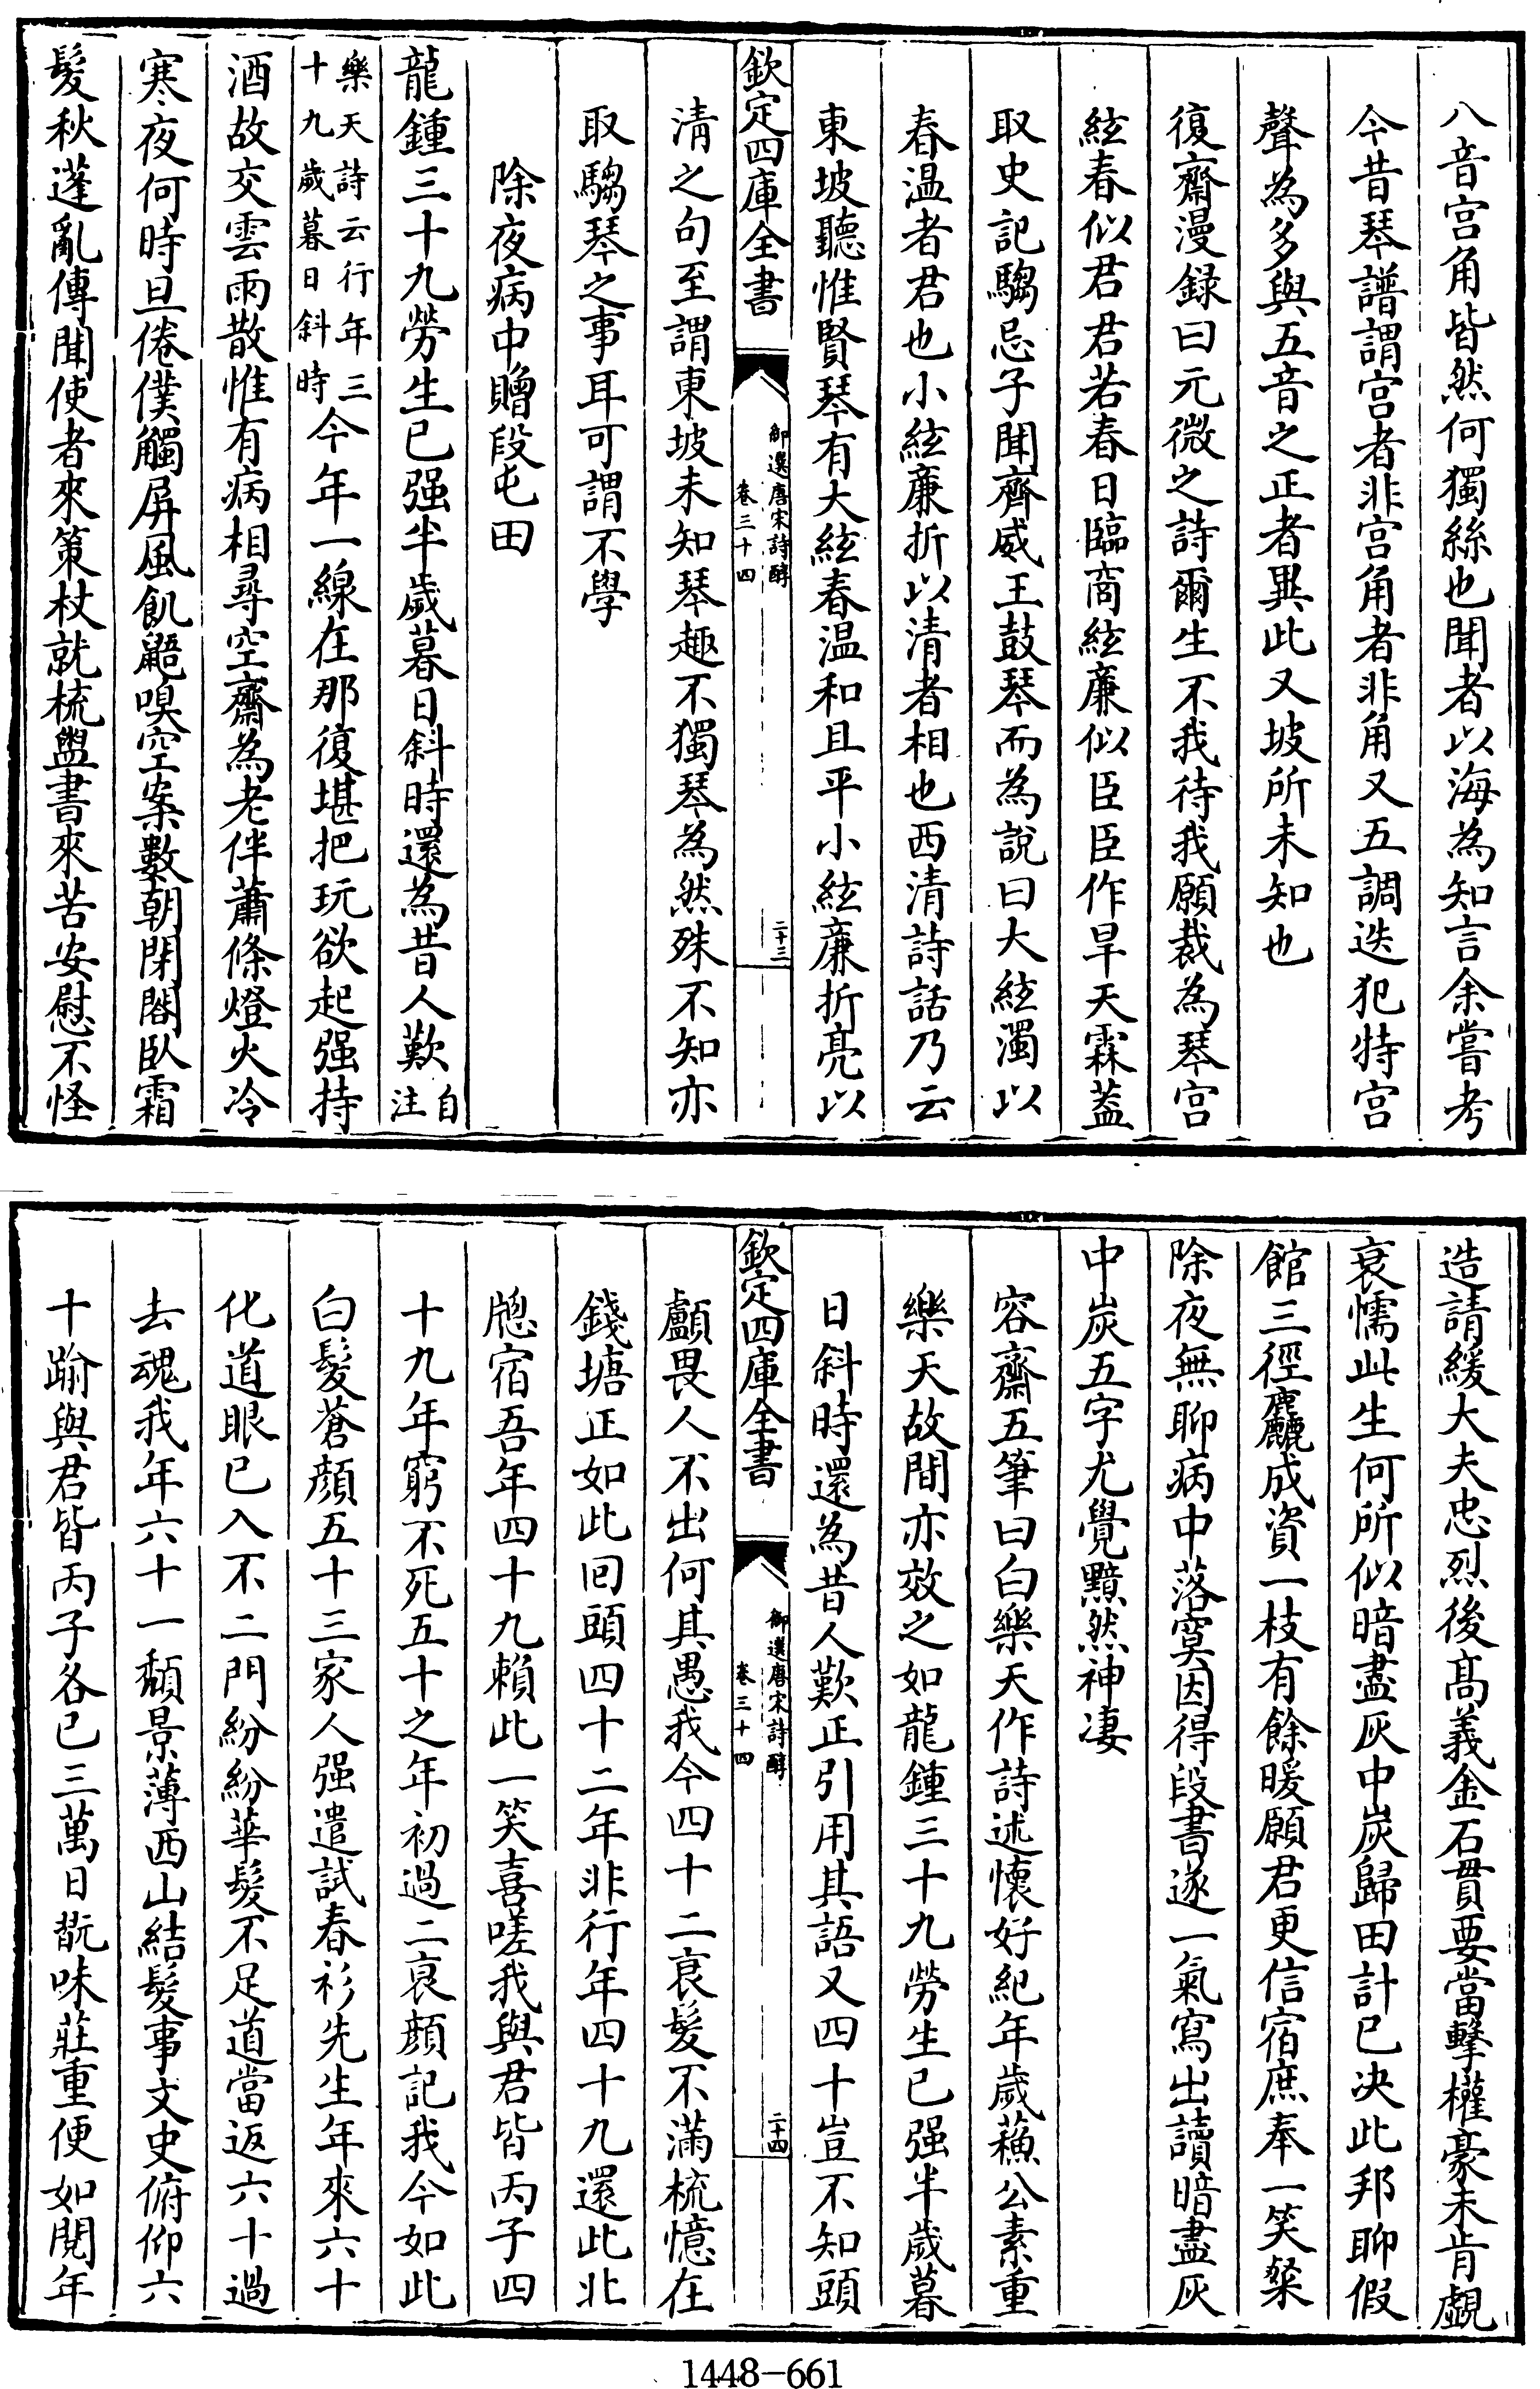 八音宫角皆然何獨絲也聞者以海為知言余嘗考
今昔琴譜謂宫者非宫角者非角又五調迭犯特宫
聲為多與五音之正者異此又坡所未知也
復齋漫録曰元微之詩爾生不我待我願裁為琴宫
絃春似君君若春日臨商絃廉似臣臣作旱天霖蓋
取史記騶忌子聞齊威王鼓琴而為說曰大絃濁以
春温者君也小絃廉折以清者相也西清詩話乃云
東坡聽惟賢琴有大絃春温和且平小絃廉折亮以
欽定四庫全書
御選唐宋詩醇
卷三十四
二十三
清之句至謂東坡未知琴趣不獨琴為然殊不知亦
取騶琴之事耳可謂不學
除夜病中贈段屯田
龍鍾三十九勞生已强半歲暮日斜時還為昔人歎自注
樂天詩云行年三十九歲暮日斜時今年一線在那復堪把玩欲起强持
酒故交雲雨散惟有病相尋空齋為老伴蕭條燈火冷
寒夜何時旦倦僕觸屏風飢鼯嗅空案數朝閉閤臥霜
髮秋蓬亂傳聞使者來策杖就梳盥書來苦安慰不怪
造請緩大夫忠烈後高義金石貫要當擊權豪未肯覷
衰懦此生何所似暗盡灰中炭歸田計已决此邦聊假
館三徑麤成資一枝有餘暖願君更信宿庶奉一笑粲
除夜無聊病中落寞因得段書遂一氣寫出讀暗盡灰
中炭五字尤覺黯然神凄
容齋五筆曰白樂天作詩述懷好紀年歲蘓公素重
樂天故間亦效之如龍鍾三十九勞生已强半歲暮
日斜時還為昔人歎正引用其語又四十豈不知頭
欽定四庫全書
御選唐宋詩醇
卷三十四
二十四
顱畏人不出何其愚我今四十二衰髮不滿梳憶在
錢塘正如此回頭四十二年非行年四十九還此北
牕宿吾年四十九賴此一笑喜嗟我與君皆丙子四
十九年窮不死五十之年初過二衰顔記我今如此
白髮蒼顔五十三家人强遣試春衫先生年來六十
化道眼已入不二門紛紛華髮不足道當返六十過
去魂我年六十一頹景薄西山結髮事文史俯仰六
十踰與君皆丙子各已三萬日翫味莊重便如閱年
1448-661